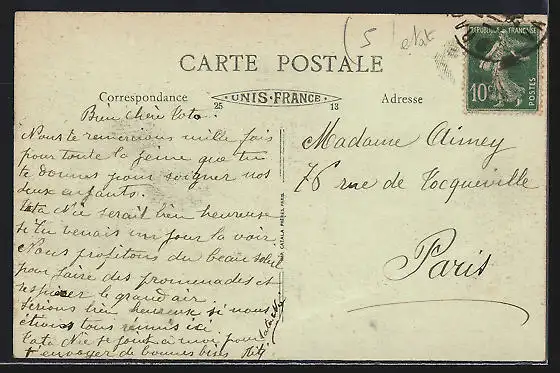 5 etat
REPUBLIQUE FRANÇAISE
10c
POSTES
CARTE POSTALE
Correspondance
UNIS-FRANCE
25 13
Adresse
Bien chère Toto.
Nous te remercions mille fois
pour toute la peine que tu
te donnes pour soigner nos
deux enfants.
Tata Nie serait bien heureuse
si tu venais un jour la voir.
Nous profitons du beau soleil
pour faire des promenades et
respirer le grand air
serions bien heureuse si nous
étions tous réunis ici
Tata Nie se joint à moi pour
t'envoyer de bonnes bises
CATALA FRÈRES, PARIS
Madame Aimey
76 rue de Tocqueville
Paris